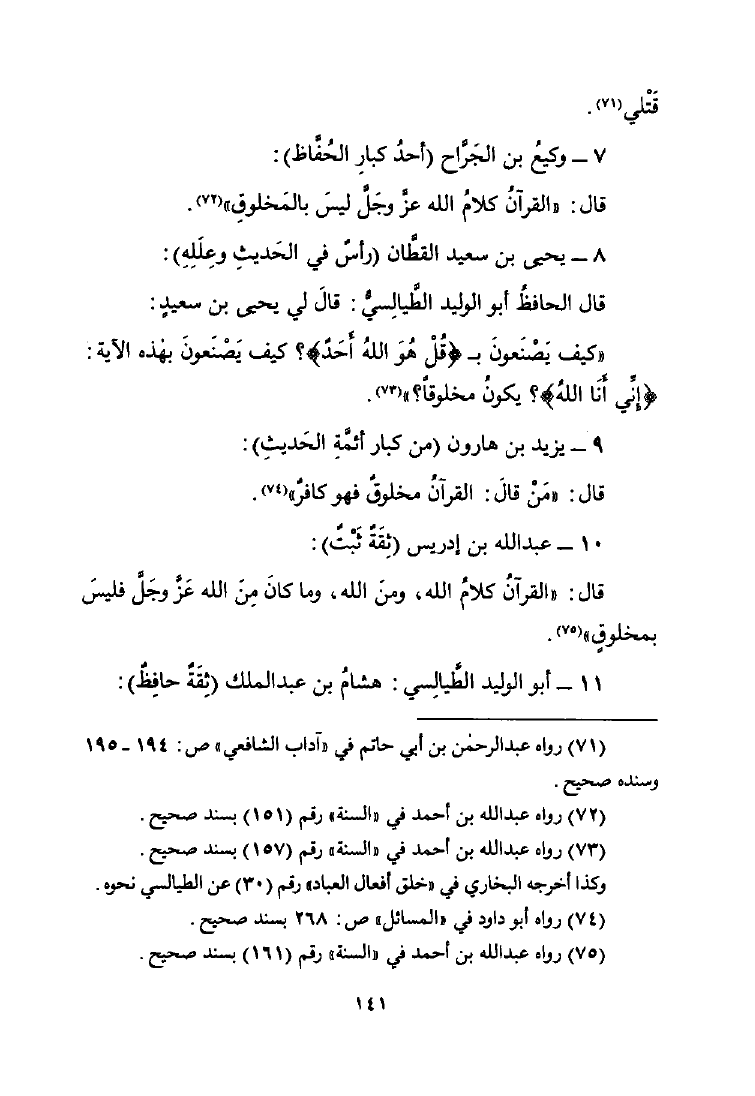 قَتْلي(٧١).
٧ ــ وكيعُ بن الجَرَّاح (أحدُ كبارِ الحُفَّاظ):
قال: «القرآنُ كلامُ الله عزَّ وجَلَّ ليسَ بالمَخلوقِ»(٧٢).
٨ ــ يحيى بن سعيد القطَّان (رأسٌ في الحَديثِ وعِلَلِهِ):
قال الحافظُ أبو الوليد الطَّيالِسيُّ: قالَ لي يحيى بن سعيدٍ:
«كيف يَصْنَعونَ بـ ﴿قُلْ هُوَ اللهُ أَحَدٌ﴾؟ كيف يَصْنَعونَ بهٰذه الآية:
﴿إِنِّي أَنَا اللهُ﴾؟ يكونُ مخلوقاً؟»(٧٣).
٩ ــ يزيد بن هارون (من كبار أئمَّةِ الحَديثِ):
قال: «مَنْ قالَ: القرآنُ مخلوقٌ فهو كافرٌ»(٧٤).
١٠ ــ عبدالله بن إدريس (ثِقَةٌ ثَبْتٌ):
قال: «القرآنُ كلامُ الله، ومنَ الله، وما كانَ مِنَ الله عَزَّ وجَلَّ فليسَ
بمخلوقٍ»(٧٥).
١١ ــ أبو الوليد الطَّيالِسي: هشامُ بن عبدالملك (ثِقَةٌ حافِظٌ):
(٧١) رواه عبدالرحمٰن بن أبي حاتم في «آداب الشافعي» ص: ١٩٤ ـ ١٩٥
وسنده صحيح.
(٧٢) رواه عبدالله بن أحمد في «السنة» رقم (١٥١) بسند صحيح.
(٧٣) رواه عبدالله بن أحمد في «السنة» رقم (١٥٧) بسند صحيح.
وكذا أخرجه البخاري في «خلق أفعال العباد» رقم (٣٠) عن الطيالسي نحوه.
(٧٤) رواه أبو داود في «المسائل» ص: ٢٦٨ بسند صحيح.
(٧٥) رواه عبدالله بن أحمد في «السنة» رقم (١٦١) بسند صحيح.
١٤١